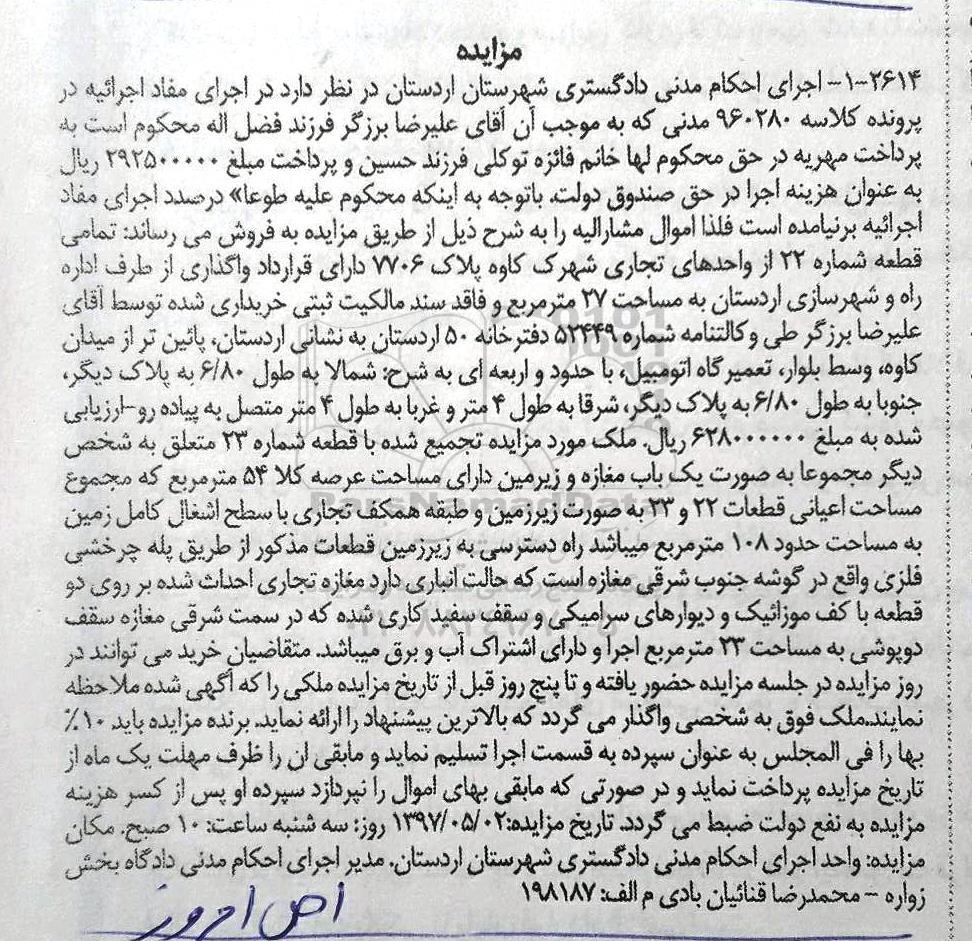 مزایده
۱-۲۶۱۴- اجرای احکام مدنی دادگستری شهرستان اردستان در نظر دارد در اجرای مفاد اجرائیه در
پرونده کلاسه ۹۶۰۲۸۰ مدنی که به موجب آن آقای علیرضا برزگر فرزند فضل اله محکوم است به
پرداخت مهریه در حق محکوم لها خانم فائزه توکلی فرزند حسین و پرداخت مبلغ ۲۹۲۵۰۰۰۰۰ ریال
به عنوان هزینه اجرا در حق صندوق دولت. باتوجه به اینکه محکوم علیه طوعا» درصدد اجرای مفاد
اجرائیه برنیامده است فلذا اموال مشارالیه را به شرح ذیل از طریق مزایده به فروش می رساند: تمامی
قطعه شماره ۲۲ از واحدهای تجاری شهرک کاوه پلاک ۷۷۰۶ دارای قرارداد واگذاری از طرف اداره
راه و شهرسازی اردستان به مساحت ۲۷ مترمربع و فاقد سند مالکیت ثبتی خریداری شده توسط آقای
علیرضا برزگر طی وکالتنامه شماره ۵۲۴۴۹ دفترخانه ۵۰ اردستان به نشانی اردستان، پائین تر از میدان
کاوه، وسط بلوار، تعمیرگاه اتومبیل، با حدود و اربعه ای به شرح: شمالا به طول ۶/۸۰ به پلاک دیگر،
جنوبا به طول ۶/۸۰ به پلاک دیگر، شرقا به طول ۴ متر و غربا به طول ۴ متر متصل به پیاده رو-ارزیابی
شده به مبلغ ۶۲۸۰۰۰۰۰۰ ریال. ملک مورد مزایده تجمیع شده با قطعه شماره ۲۳ متعلق به شخص
دیگر مجموعا به صورت یک باب مغازه و زیرمین دارای مساحت عرصه کلا ۵۴ مترمربع که مجموع
مساحت اعیانی قطعات ۲۲ و ۲۳ به صورت زیرزمین و طبقه همکف تجاری با سطح اشغال کامل زمین
به مساحت حدود ۱۰۸ مترمربع میباشد راه دسترسی به زیرزمین قطعات مذکور از طریق پله چرخشی
فلزی واقع در گوشه جنوب شرقی مغازه است که حالت انباری دارد مغازه تجاری احداث شده بر روی دو
قطعه با کف موزائیک و دیوارهای سرامیکی و سقف سفید کاری شده که در سمت شرقی مغازه سقف
دوپوشی به مساحت ۲۳ مترمربع اجرا و دارای اشتراک آب و برق میباشد. متقاضیان خرید می توانند در
روز مزایده در جلسه مزایده حضور یافته و تا پنج روز قبل از تاریخ مزایده ملکی را که آگهی شده ملاحظه
نمایند.ملک فوق به شخصی واگذار می گردد که بالاترین پیشنهاد را ارائه نماید. برنده مزایده باید ۱۰٪
بها را فی المجلس به عنوان سپرده به قسمت اجرا تسلیم نماید و مابقی ان را ظرف مهلت یک ماه از
تاریخ مزایده پرداخت نماید و در صورتی که مابقی بهای اموال را نپردازد سپرده او پس از کسر هزینه
مزایده به نفع دولت ضبط می گردد. تاریخ مزایده:۱۳۹۷/۰۵/۰۲ روز: سه شنبه ساعت: ۱۰ صبح. مکان
مزایده: واحد اجرای احکام مدنی دادگستری شهرستان اردستان. مدیر اجرای احکام مدنی دادگاه بخش
زواره - محمدرضا قنائیان بادی م الف: ۱۹۸۱۸۷
ParsNamadData